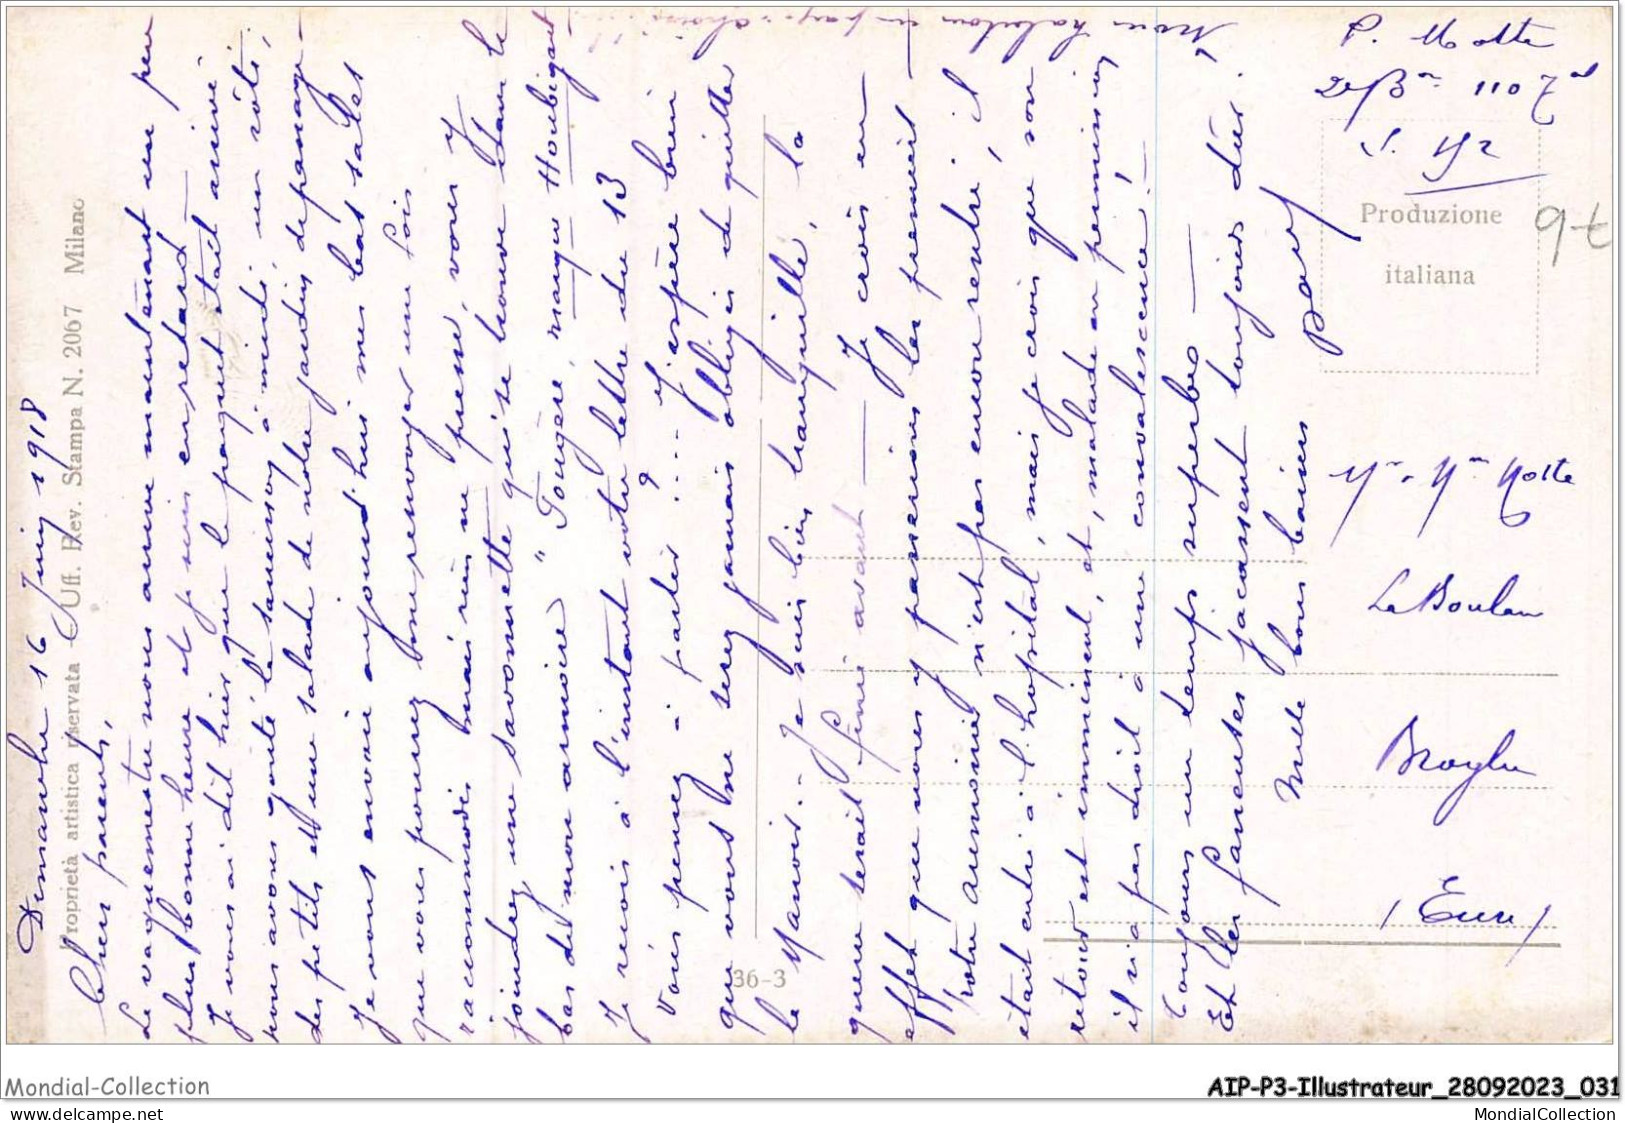 Dimanche 16 Juin 1918
Chers parents,
Le vaguemestre nous arrive maintenant un peu
plus bonne heure et je suis en retard —
Je vous ai dit hier que le paquet était arrivé
nous avons goûté le saucisson à midi, un rôti,
des petits et une salade de notre jardin
Je vous envoie aujourd'hui mes bas sales
que vous pourrez me renvoyer une fois
raccommodés mais rien ne presse, vous y
joindrez une savonnette qui se trouve dans le
bas de mon armoire " Fougère, marque Houbigant
Je reçois à l'instant votre lettre du 13
Vous pensez à partir .... j'espère bien
que vous ne serez jamais obligés de quitter
le Manoir. – Je suis bien tranquille, la
guerre serait finie avant — Je crois en
effet que nous y passerions les premiers —
Notre aumônier n'est pas encore rentré, il
était entré à l'hôpital, mais je crois que son
retour est imminent, et, malade en permission,
il n'a pas droit à une convalescence !
Toujours un temps superbe —
Et les fameuses jacassent toujours dur !
Mille bons baisers
P. Motte
110
S. P. 192
Mr. Mme Motte
La Boulaie
Broglie
(Eure)
9t
Proprietà artistica riservata - Uff. Rev. Stampa N. 2067 Milano
Produzione
italiana
36-3
Mondial-Collection
AIP-P3-Illustrateur_28092023_031
www.delcampe.net
MondialCollection